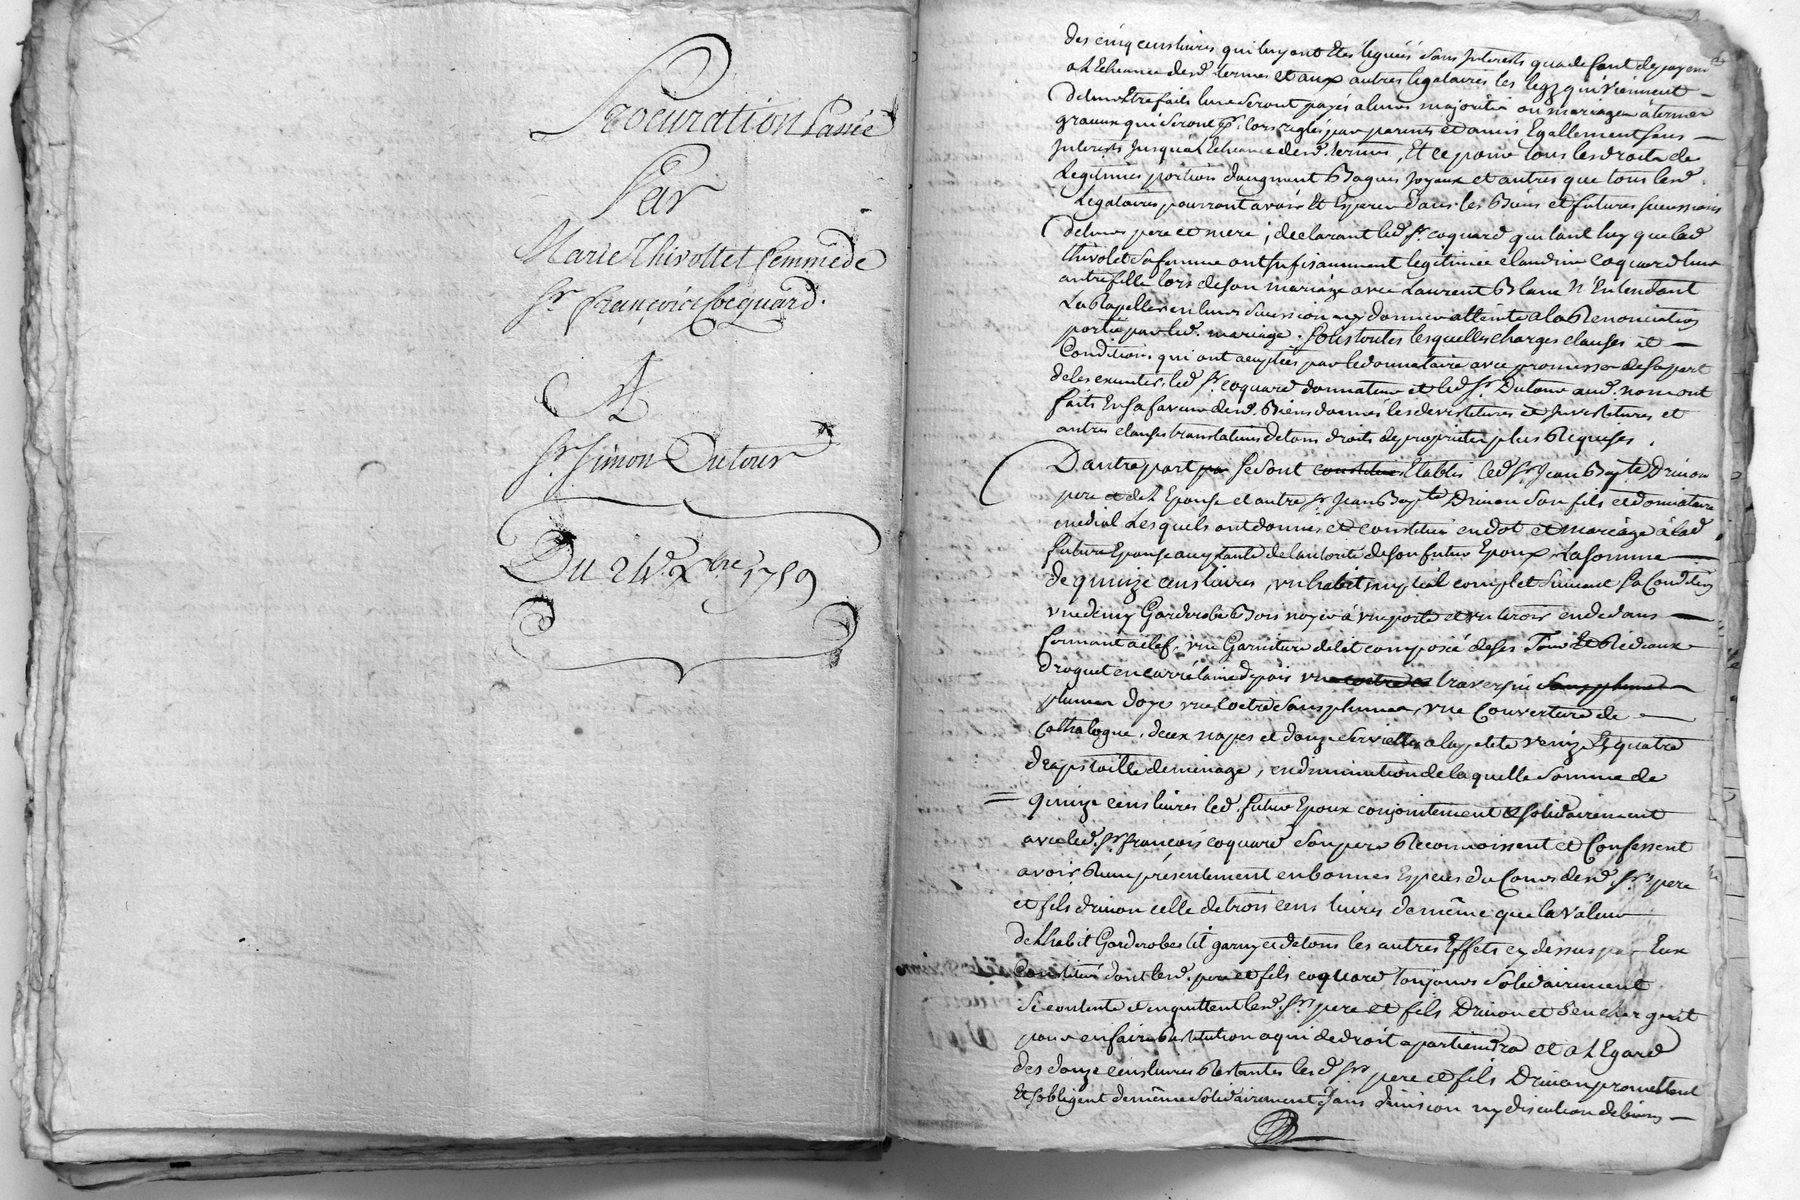 Procuration Passée
Par
Marie Thivollet femme de
Sr. françoice Cocquard.
A
Sr. Simon Dutour
Du 24e. Xbre. 1759
des cinq cens livres qui luy ont étés légués sans Interests qua deffaut de payemt
a L'Echeance desd. termes et aux autres légataires les legz qui viennent
deleur Etre faits leur seront payés a leurs majorités ou mariage a termes
gracieux qui seront pr. lors reglés par parents et amis Egallement sans
Interests Jusqua L'Echeance desd. termes, Et ce pour tous les droits de
Legitimes portions d'augment Bagues Joyaux et autres que tous lesd.
Légataires pourront avoir Et Esperer dans les Biens et futures successions
deleurs pere et mere; declarant led. Sr. coquard qui tant luy que lad.
thivolet sa femme ont suffisamment legitimée claudine coquard leur
autre fille lors de son mariage avec Laurent Blanc N'Entendant
La Rapeller en leurs succession ny donner atteinte a la Renonciation
portée par led. mariage. sous toutes lesquelles charges clauses et
Conditions qui ont acceptées par le donnataire avec promesse de sa part
de les executer, led. Sr. coquard donnateur et led. Sr. Dutour aud. nom ont
faits En sa faveur desd. Biens donnés les devestitures et Investitures et
autres clauses translatives de tous droits de proprieter plus Requises.
D'autre part par se sont constitués Etablis led. Sr. Jean Bapte. Drivon
pere de L'Epouse et autre Sr. Jean Bapte Drivon son fils et donnataire
medial Lesquels ont donnés et constitué en dot et mariage à lad.
future Epouse acceptante de lautorité de son futur Epoux, La somme
de quinze cens livres, un habit nuptial complet suivant sa Condition
une demy Garderobe Bois noyer à une porte et un tiroir en dedans
fermant a clef, une Garniture de lit composée de ses Tour Et Rideaux
droguet en carré laine d
une coetre et traversin sans plume
plumes d'oye une Coetre sans plumes, une Couverture de
Cathalogne, deux napes et douze serviettes a la petite venize Et quatre
draps toille de menage, en diminution de laquelle somme de
quinze cens livres led. futur Epoux conjointement et solidairement
avec led. Sr. françois coquard son pere Reconnoissent et Confessent
avoir Reçu présentement en bonnes Especes du Cours desd. Srs. pere
et fils drivon celle de trois cens livres de même que la valeur
de L'habit Garderobe lit garny et de tous les autres Effets cy dessus par Eux
Constitués dont lesd. pere et fils coquard toujours solidairement
se contente et en quittent lesd. Srs. pere et fils Drivon et s'en chargent
pour en faire Restitution a qui de droit apartiendra et a L'Egard
des douze cens livres Restantes lesd. Srs. pere et fils Drivon promettent
Et s'obligent de même solidairement sans division ny discution de biens